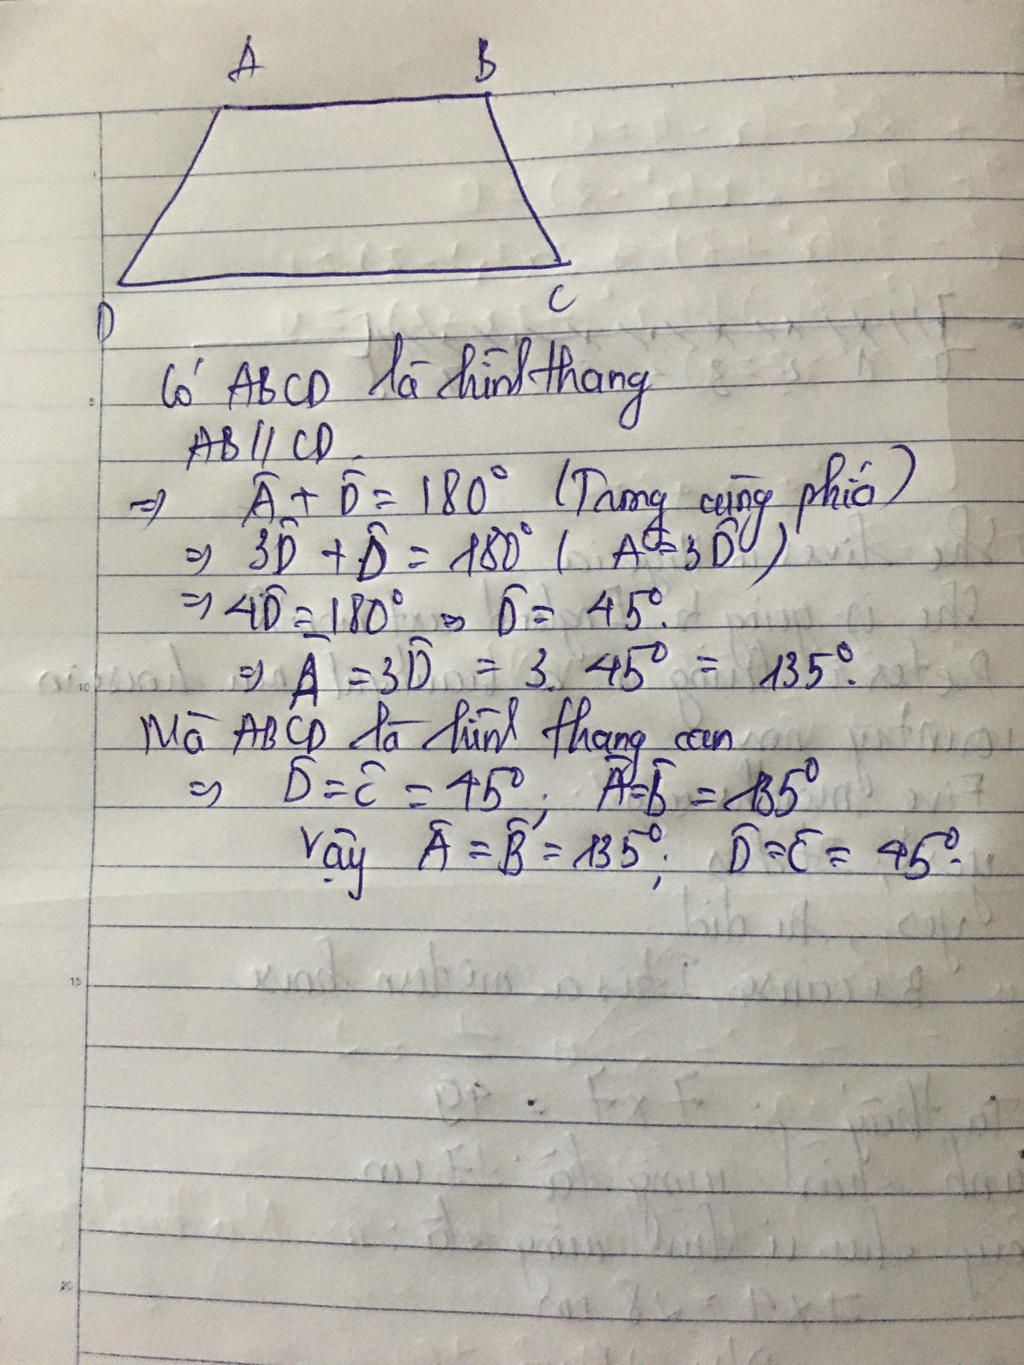 A B
D C
Có ABCD là hình thang
AB // CD.
⇒ Â + D̂ = 180° (Trong cùng phía)
⇒ 3D̂ + D̂ = 180° ( Â = 3D̂ )
⇒ 4D̂ = 180° ⇒ D̂ = 45°.
⇒ Â = 3D̂ = 3. 45° = 135°.
Mà ABCD là hình thang can
⇒ D̂ = Ĉ = 45°; Â = B̂ = 135°
Vậy Â = B̂ = 135°; D̂ = Ĉ = 45°.
5
10
15
20